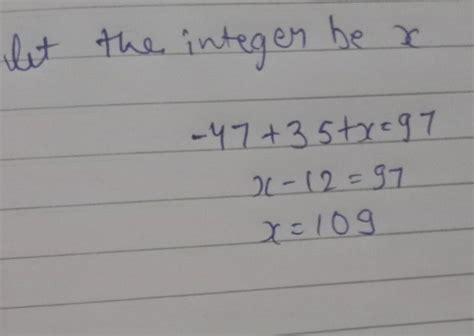 let the integer be x
-47+35+x=97
x-12=97
x=109